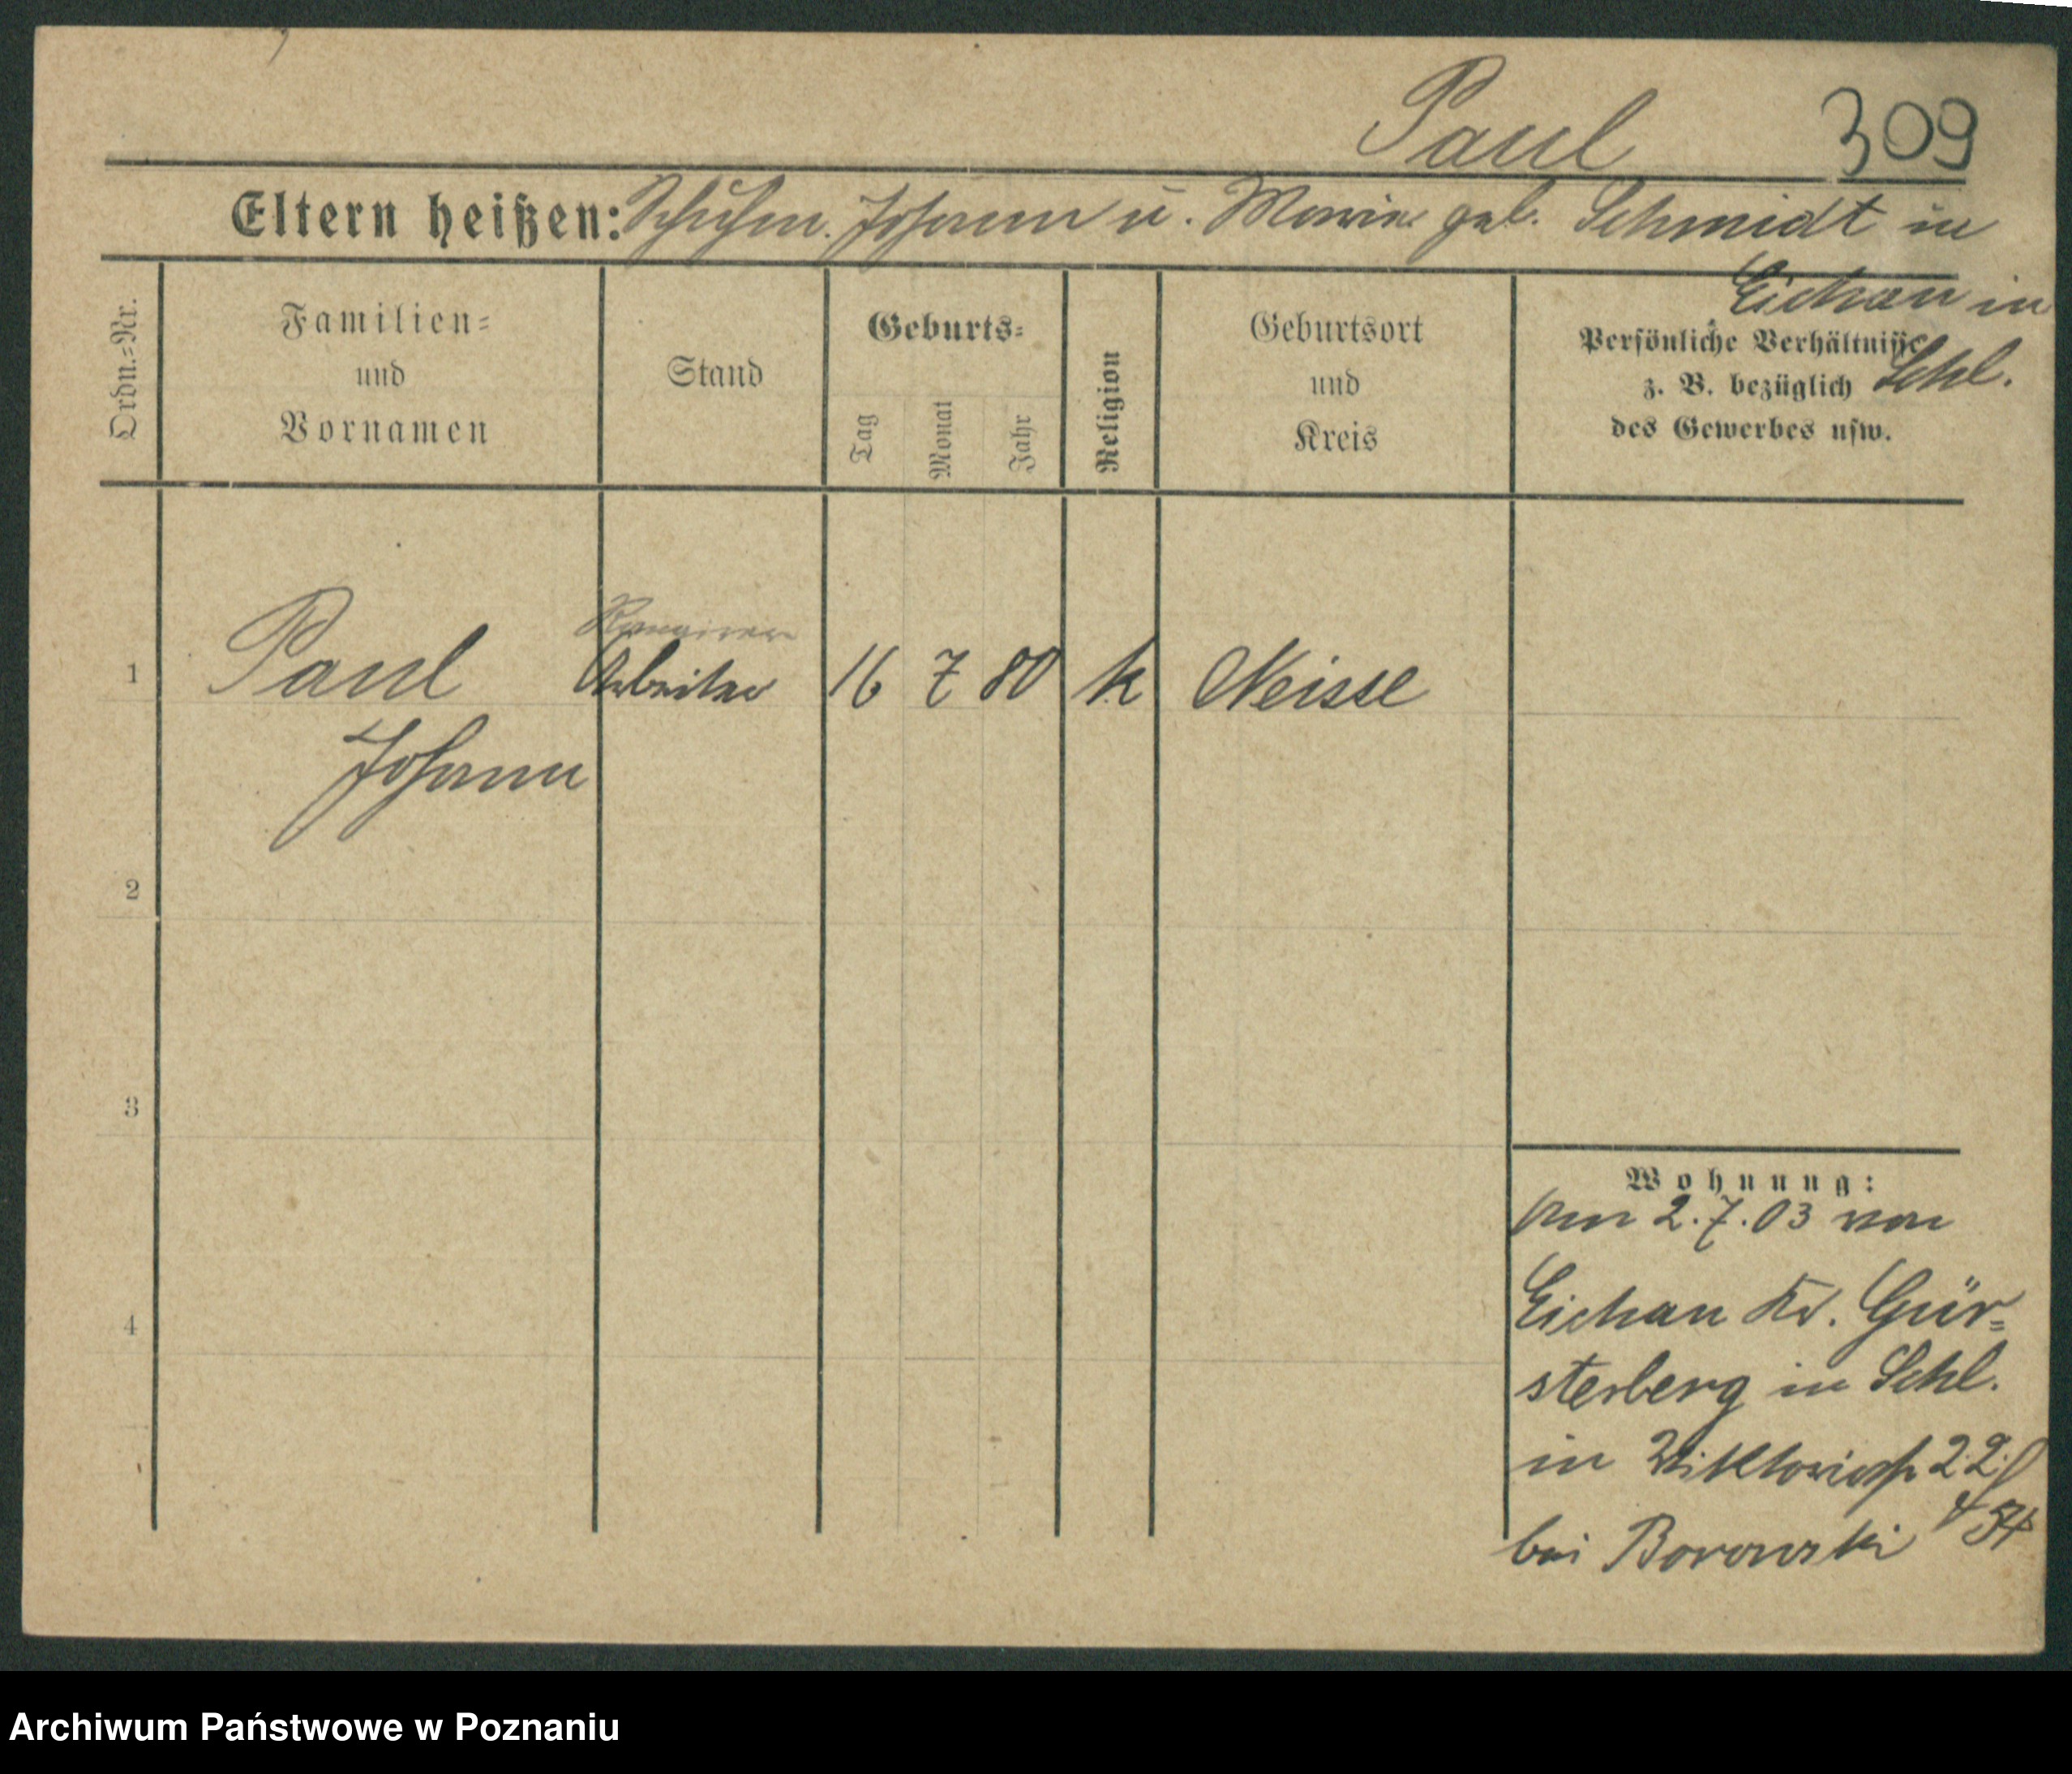 Paul 309
Eltern heißen: Schuhm. Johann u. Marie geb. Schmidt in
Eichau in
Schl.
Ordn.=Nr.
Familien=
und
Vornamen
Stand
Geburts=
Tag
Monat
Jahr
Religion
Geburtsort
und
Kreis
Persönliche Verhältnisse
z. B. bezüglich
des Gewerbes usw.
1 Paul Arbeiter 16 7 80 k Neisse
Johann
2
3
4
Wohnung:
Am 2.7.03 von
Eichau Kr. Gür=
sterberg in Schl.
in Viktoriastr 22
bei Borowski
Archiwum Państwowe w Poznaniu